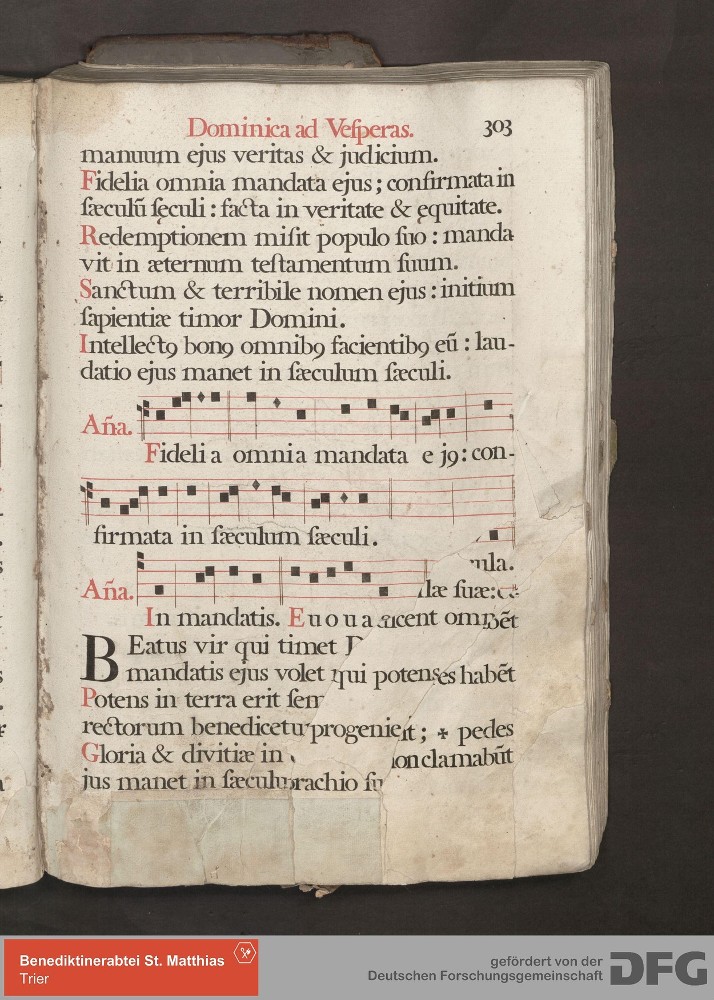 Dominica ad Veſperas. 303
manuum ejus veritas & judicium.
Fidelia omnia mandata ejus; confirmata in
ſæculū ſęculi: facta in veritate & ęquitate.
Redemptionem miſit populo ſuo: manda
vit in æternum teſtamentum ſuum.
Sanctum & terribile nomen ejus: initium
ſapientiæ timor Domini.
Intellectꝯ bonꝯ omnibꝯ facientibꝯ eū: lau-
datio ejus manet in ſæculum ſæculi.
Aña.
Fidelia omnia mandata ejꝯ: con-
firmata in ſæculum ſæculi.
Aña.
ula.
læ ſuæ:
In mandatis. E u o u a icent om bēt
BEatus vir qui timet
mandatis ejus volet qui potens es habēt
Potens in terra erit ſem
rectorum benedicetu progenie it; + pedes
Gloria & divitiæ in ion clamabūt
jus manet in ſæculu brachio ſu
Benediktinerabtei St. Matthias
Trier
gefördert von der
Deutschen Forschungsgemeinschaft DFG